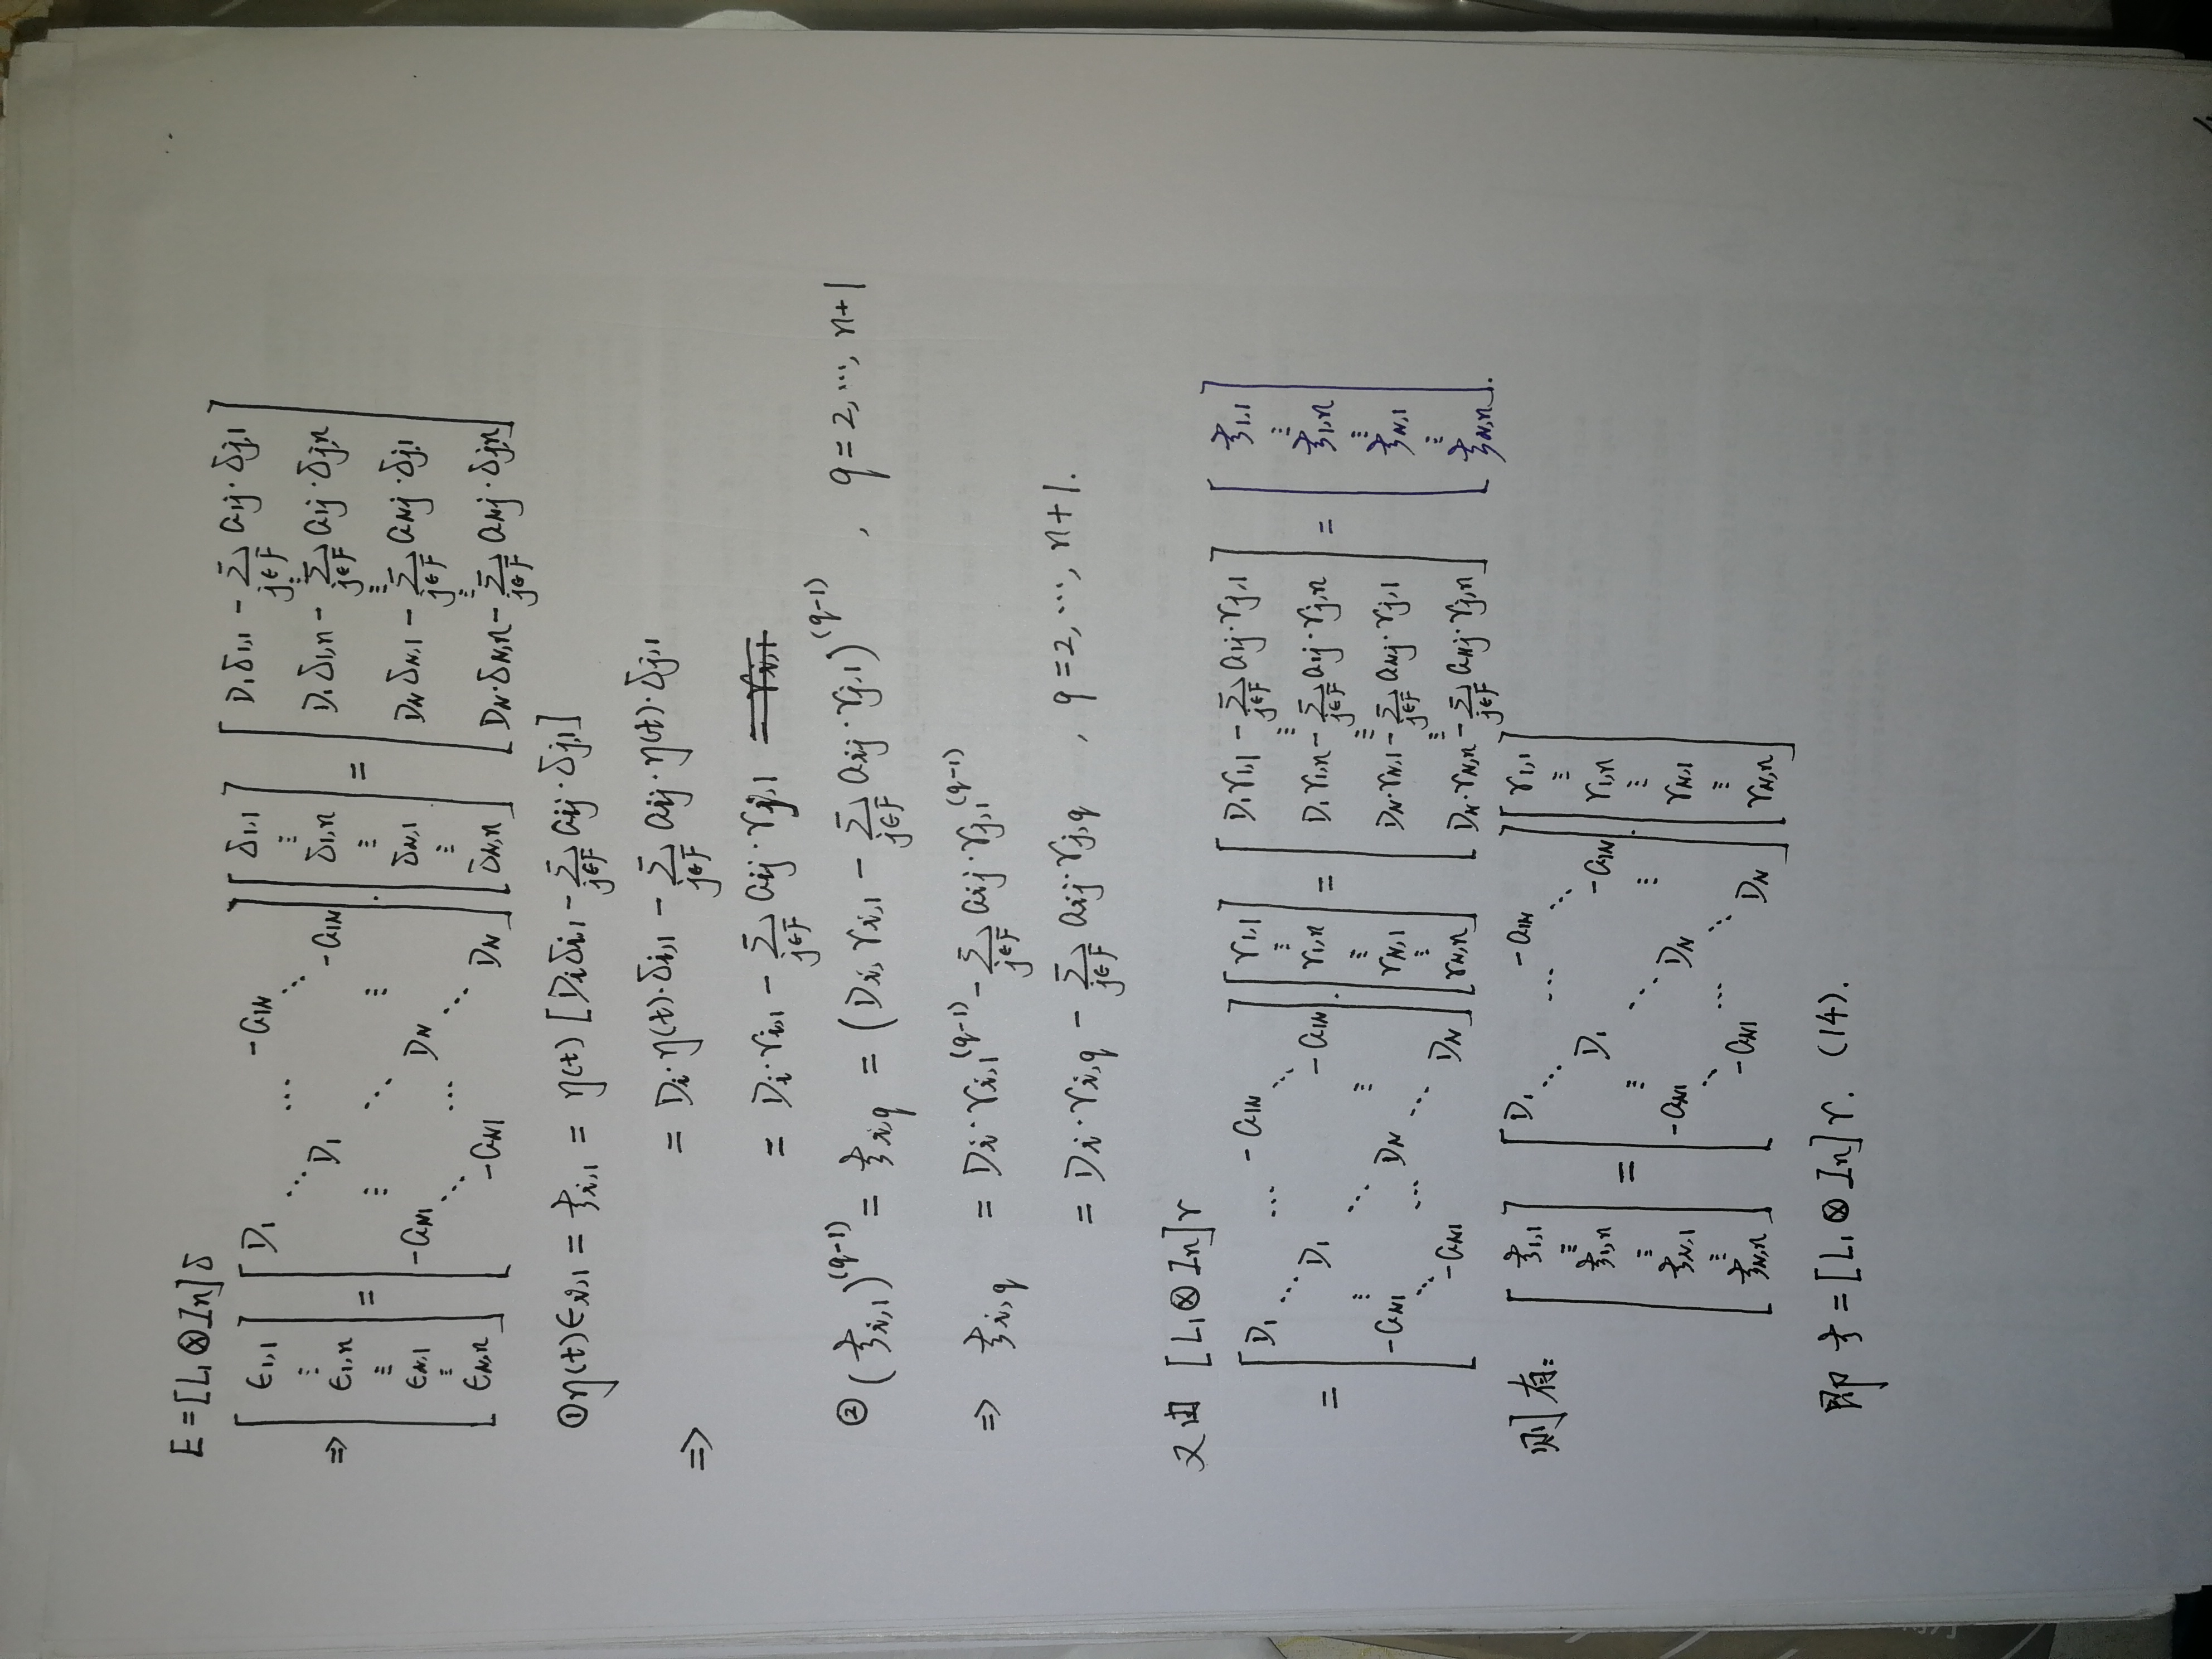 E = [L₁ ⊗ In] δ
⇒ [ ϵ1,1 ⋮ ϵ1,n ⋮ ϵN,1 ⋮ ϵN,n ] = [ D1 ⋱ D1 ⋯ -a1N ⋱ -a1N ⋮ ⋱ ⋮ -aN1 ⋱ -aN1 ⋯ DN ⋱ DN ] · [ δ1,1 ⋮ δ1,n ⋮ δN,1 ⋮ δN,n ] = [ D1δ1,1 - Σj∈F a1j·δj,1 ⋮ D1δ1,n - Σj∈F a1j·δj,n ⋮ DNδN,1 - Σj∈F aNj·δj,1 ⋮ DN·δN,n - Σj∈F aNj·δj,n ]
① η(t)ϵi,1 = ξi,1 = η(t) [Diδi,1 - Σj∈F aij·δj,1]
⇒ = Di·η(t)·δi,1 - Σj∈F aij·η(t)·δj,1
= Di·ri,1 - Σj∈F aij·rj,1 = ri,1
② (ξi,1)^(q-1) = ξi,q = (Di, ri,1 - Σj∈F aij·rj,1)^(q-1) , q = 2, ⋯, n+1
⇒ ξi,q = Di·ri,1^(q-1) - Σj∈F aij·rj,1^(q-1)
= Di·ri,q - Σj∈F aij·rj,q , q = 2, ⋯, n+1.
又由 [L₁ ⊗ In] r
= [ D1 ⋱ D1 ⋯ -a1N ⋱ -a1N ⋮ ⋱ ⋮ -aN1 ⋱ -aN1 ⋯ DN ⋱ DN ] · [ r1,1 ⋮ r1,n ⋮ rN,1 ⋮ rN,n ] = [ D1r1,1 - Σj∈F a1j·rj,1 ⋮ D1r1,n - Σj∈F a1j·rj,n ⋮ DN·rN,1 - Σj∈F aNj·rj,1 ⋮ DN·rN,n - Σj∈F aNj·rj,n ] = [ ξ1,1 ⋮ ξ1,n ⋮ ξN,1 ⋮ ξN,n ].
则有: [ ξ1,1 ⋮ ξ1,n ⋮ ξN,1 ⋮ ξN,n ] = [ D1 ⋱ D1 ⋯ -a1N ⋱ -a1N ⋮ ⋱ ⋮ -aN1 ⋱ -aN1 ⋯ DN ⋱ DN ] · [ r1,1 ⋮ r1,n ⋮ rN,1 ⋮ rN,n ]
即 ξ = [L₁ ⊗ In] r. (14).